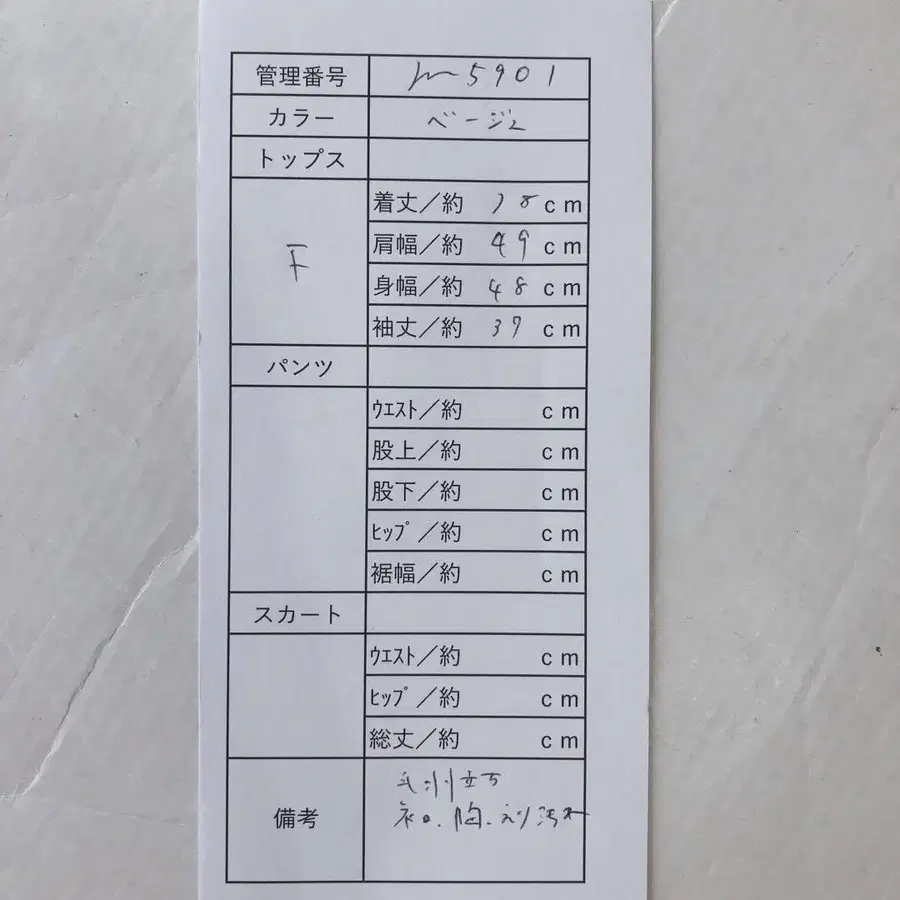 管理番号 m5901
カラー ベージュ
トップス
F
着丈／約 78cm
肩幅／約 49cm
身幅／約 48cm
袖丈／約 37cm
パンツ
ｳｴｽﾄ／約 cm
股上／約 cm
股下／約 cm
ﾋｯﾌﾟ／約 cm
裾幅／約 cm
スカート
ｳｴｽﾄ／約 cm
ﾋｯﾌﾟ／約 cm
総丈／約 cm
備考
毛羽立ち
胸